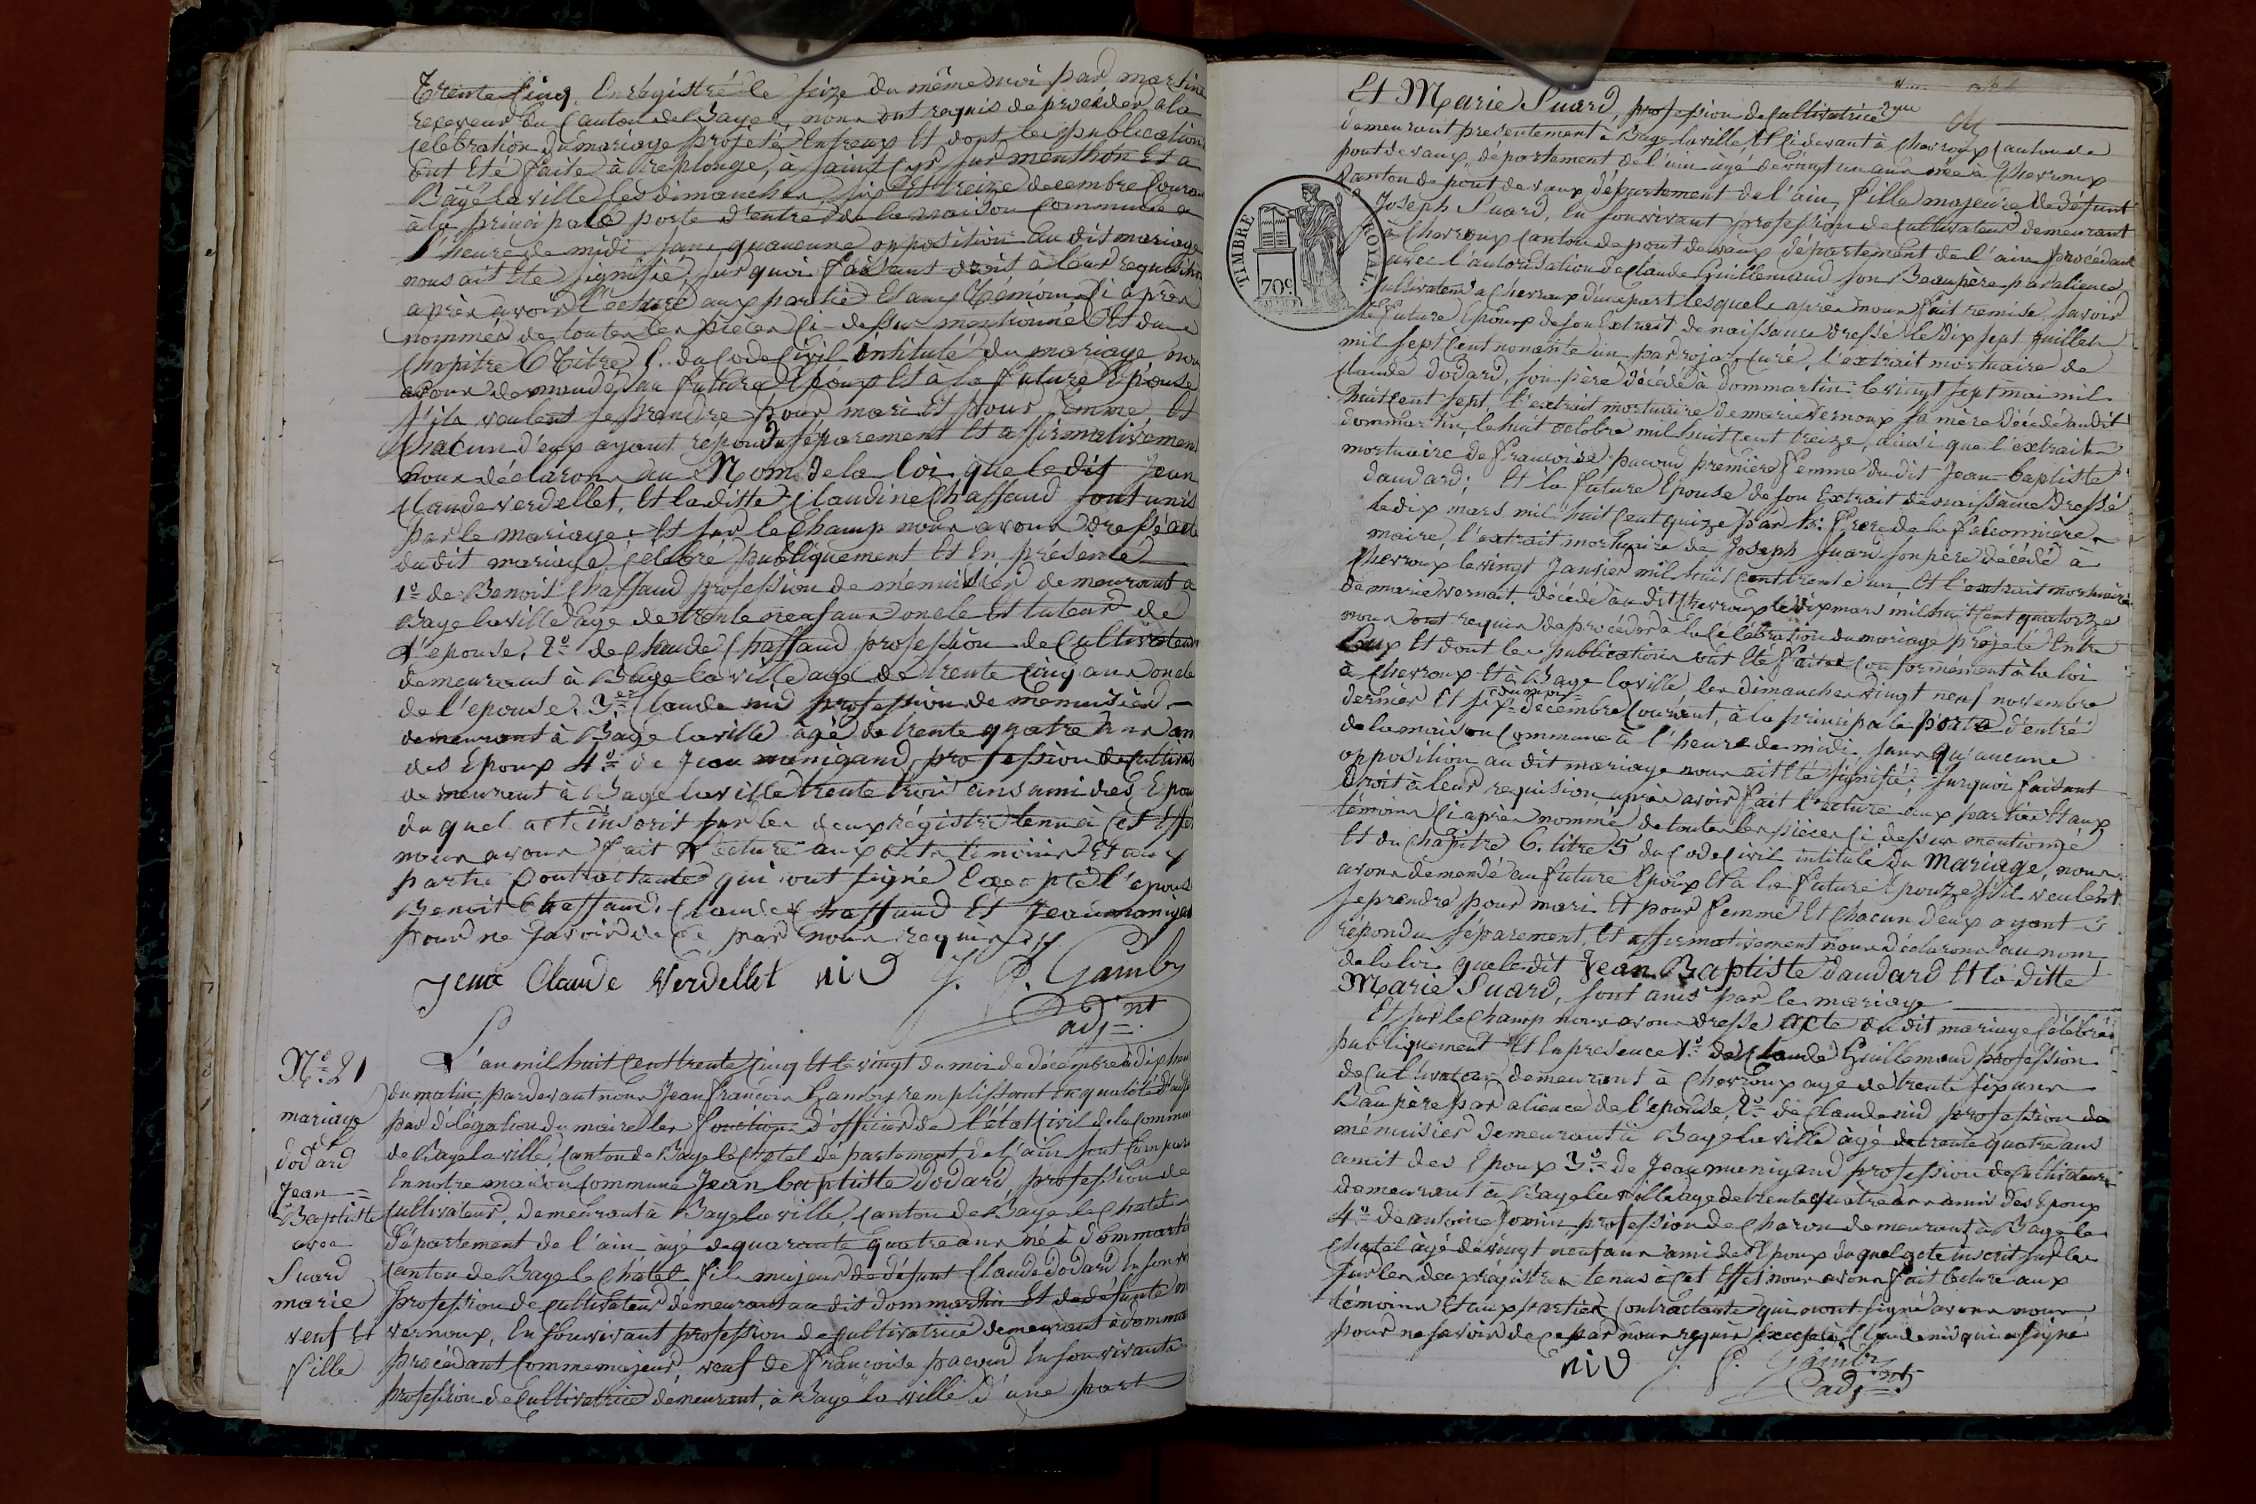 Trente Cinq, Enrégistré le seize du même moi par martine
receveur du Canton de Bagé, nous ont requis de procéder a la
célébration du mariage projeté entreux Et dont les publication
ont Eté faite à replonge, à saint Cyr sur menthon Et à
Bagé la ville les dimanches six Et treize decembre Couran
à la principale porte d'entré de la maison Commune a
l'heure de midi sans quaucune opposition au dit mariage
nous ait Eté signifié; sur quoi faisant droit à leur requisition
après avoir Lecture aux partie Et aux Témoins Ci après
nommés de toutes les pièces Ci-dessus mentionné Et du
Chapitre 6 Titre 5. du Code Civil intitulé du mariage nous
avons demandé au futur Epoux Et à la future Epouse
s'ils veulent se prendre pour mari Et pour femme Et
Chacun d'eux ayant repondu séparement Et affirmativement
nous déclarons au Nom de la loi que le dit Jean
Claude Verdellet, Et la ditte Claudine Chaffaud sont unis
par le mariage. Et sur le Champ nous avons dressé acte
du dit mariage célébré publiquement Et En présence
1º de Benoit Chaffaud profession de ménuisier demeurant a
Bagé la ville agé de trente neuf ans oncle Et tuteur de
l'epouse, 2º de Claude Chaffaud profession de Cultivateur
demeurant à Bagé la ville agé de trente Cinq ans oncle
de l'epouse. 3º de Claude nid profession de menuisier
demeurant à Bagé la ville âgé de trente quatre ans ami
des Epoux 4º de Jean manigand, profession de Cultivat
demeurant à Bagé la ville trente trois ans ami des Epou
du quel acte inscrit sur les deux régistre tenu à Cet Effet
nous avons fait lecture aux dits témoins Et aux
partie Contractante qui ont signé Excepté l'epouse
Benoit Chaffaud, Claude Chaffaud Et Jean manigand
pour ne savoir de Ce par nous requis
Jean Claude Verdellet nid J. F. Gamby
adj.nt
Nº 21
mariage
de
dodard
Jean
Baptiste
avec
Suard
marie
veuf Et
fille
L'an mil huit Cent trente Cinq Et le vingt du moi de décembre à dix heu
du matin, pardevant nous Jean françois Gamby remplissant En qualité d'adj
par délégation du maire les fonctions d'officier de l'état Civil de la Commune
de Bagé la ville, Canton de Bagé le Chatel département de l'ain sont Compar
En notre maison Commune Jean baptiste dodard, profession de
Cultivateur, demeurant à Bagé la ville, Canton de Bagé le Chatel
département de l'ain âgé de quarante quatre ans né à dommartin
Canton de Bagé le Châtel fils majeur de défunt Claude dodard En son viv
profession de Cultivateur demeurant au dit dommartin Et de défunte m
vernoux, En son vivant profession de Cultivatrice demeurant à domma
procédant Comme majeur, veuf de françoise pacoud En son vivante
profession de Cultivatrice demeurant, à Bagé la ville d'une part
Et Marie Suard, profession de Cultivatrice
demeurant presentement à Bagé la ville Et Cidevant à Chevroux Canton de
pont de vaux, département de l'ain âgé de vingt un ans née à Chevroux
Canton de pont de vaux département de l'ain, fille majeure de défunt
Joseph Suard, En son vivant profession de Cultivateur demeurant
à Chevroux Canton de pont de vaux département de l'ain procédant
avec l'autorisation de Claude Guillemaud son Beaupère par alience
Cultivateur à Chevroux d'une part lesquels après nous fait remise savoir
le future Epoux de son Extrait de naissance dressé le dix sept juillet
mil sept Cent nonante un par rojas Curé, l'extrait mortuaire de
Claude dodard, son père décédé à dommartin le vingt sept mai mil
huit Cent sept l'extrait mortuaire de marie vernoux sa mère décédé au dit
dommartin, le huit octobre mil huit Cent treize, ainsi que l'extrait
mortuaire de françoise pacoud première femme du dit Jean-baptiste
daudard; Et la future Epouse de son Extrait de naissance dressé
le dix mars mil huit Cent quize par frere de la falconnière
maire, l'extrait mortuaire de Joseph Suard son père décédé à
Chevroux le vingt Janvier mil huit Cent trente un, Et l'extrait mortuaire
de marie vernait, décédé au dit Chevroux le dix mars mil huit Cent quatorze
nous ont requis de procéder à la Célébration du mariage projeté Entre
Eux Et dont les publications ont Eté faites Conformément à la loi
à Chevroux Et à Bagé la ville, les dimanches vingt neuf novembre
dernier Et six decembre Courant, à la principale porte d'entré
de la maison Commune à l'heure de midi sans qu'aucune
opposition au dit mariage nous ait Eté signifié; sur quoi faisant
droit à leur requision après avoir fait l'ecture aux partie Et aux
témoins Ci après nommé de toutes les pièces Ci dessus mentionné
Et du Chapitre 6. titre 5 du Code Civil intitulé du Mariage, nous
avons demandé au future Epoux Et à la future Epouze s'il veulent
se prendre pour mari Et pour femme Et Chacun d'eux ayant
répondu séparement, Et affirmativement nous déclarons au nom
de la loi que le dit Jean Baptiste daudard Et la ditte
Marie Suard, sont unis par le mariage
Et sur le Champ nous avons dressé acte du dit mariage Célébré
publiquement Et En presence 1º de Claude Guillemaud profession
de Cultivateur demeurant à Chevroux agé de trente six ans
Baupère par alience de l'epouse, 2º de Claude nid profession de
ménuisier demeurant à Bagé la ville âgé de trente quatre ans
amit des Epoux 3º de Jean manigand profession de Cultivateur
demeurant à Bagé la ville agé de trente quatre ans ami des Epoux
4º de antoine Jovin, profession de Charon demeurant à Bagé le
Chatel âgé de vingt neuf ans ami des Epoux du quel acte inscrit sur les
sur les deux régistre tenus à Cet Effet nous avons fait lecture aux
témoins Et aux parties Contractante qui n'ont signé avec nous
pour ne savoir de Ce par nous requis Excepté Claude nid qui a signé
nid J. F. Gamby
adj.nt
TIMBRE ROYAL
70c